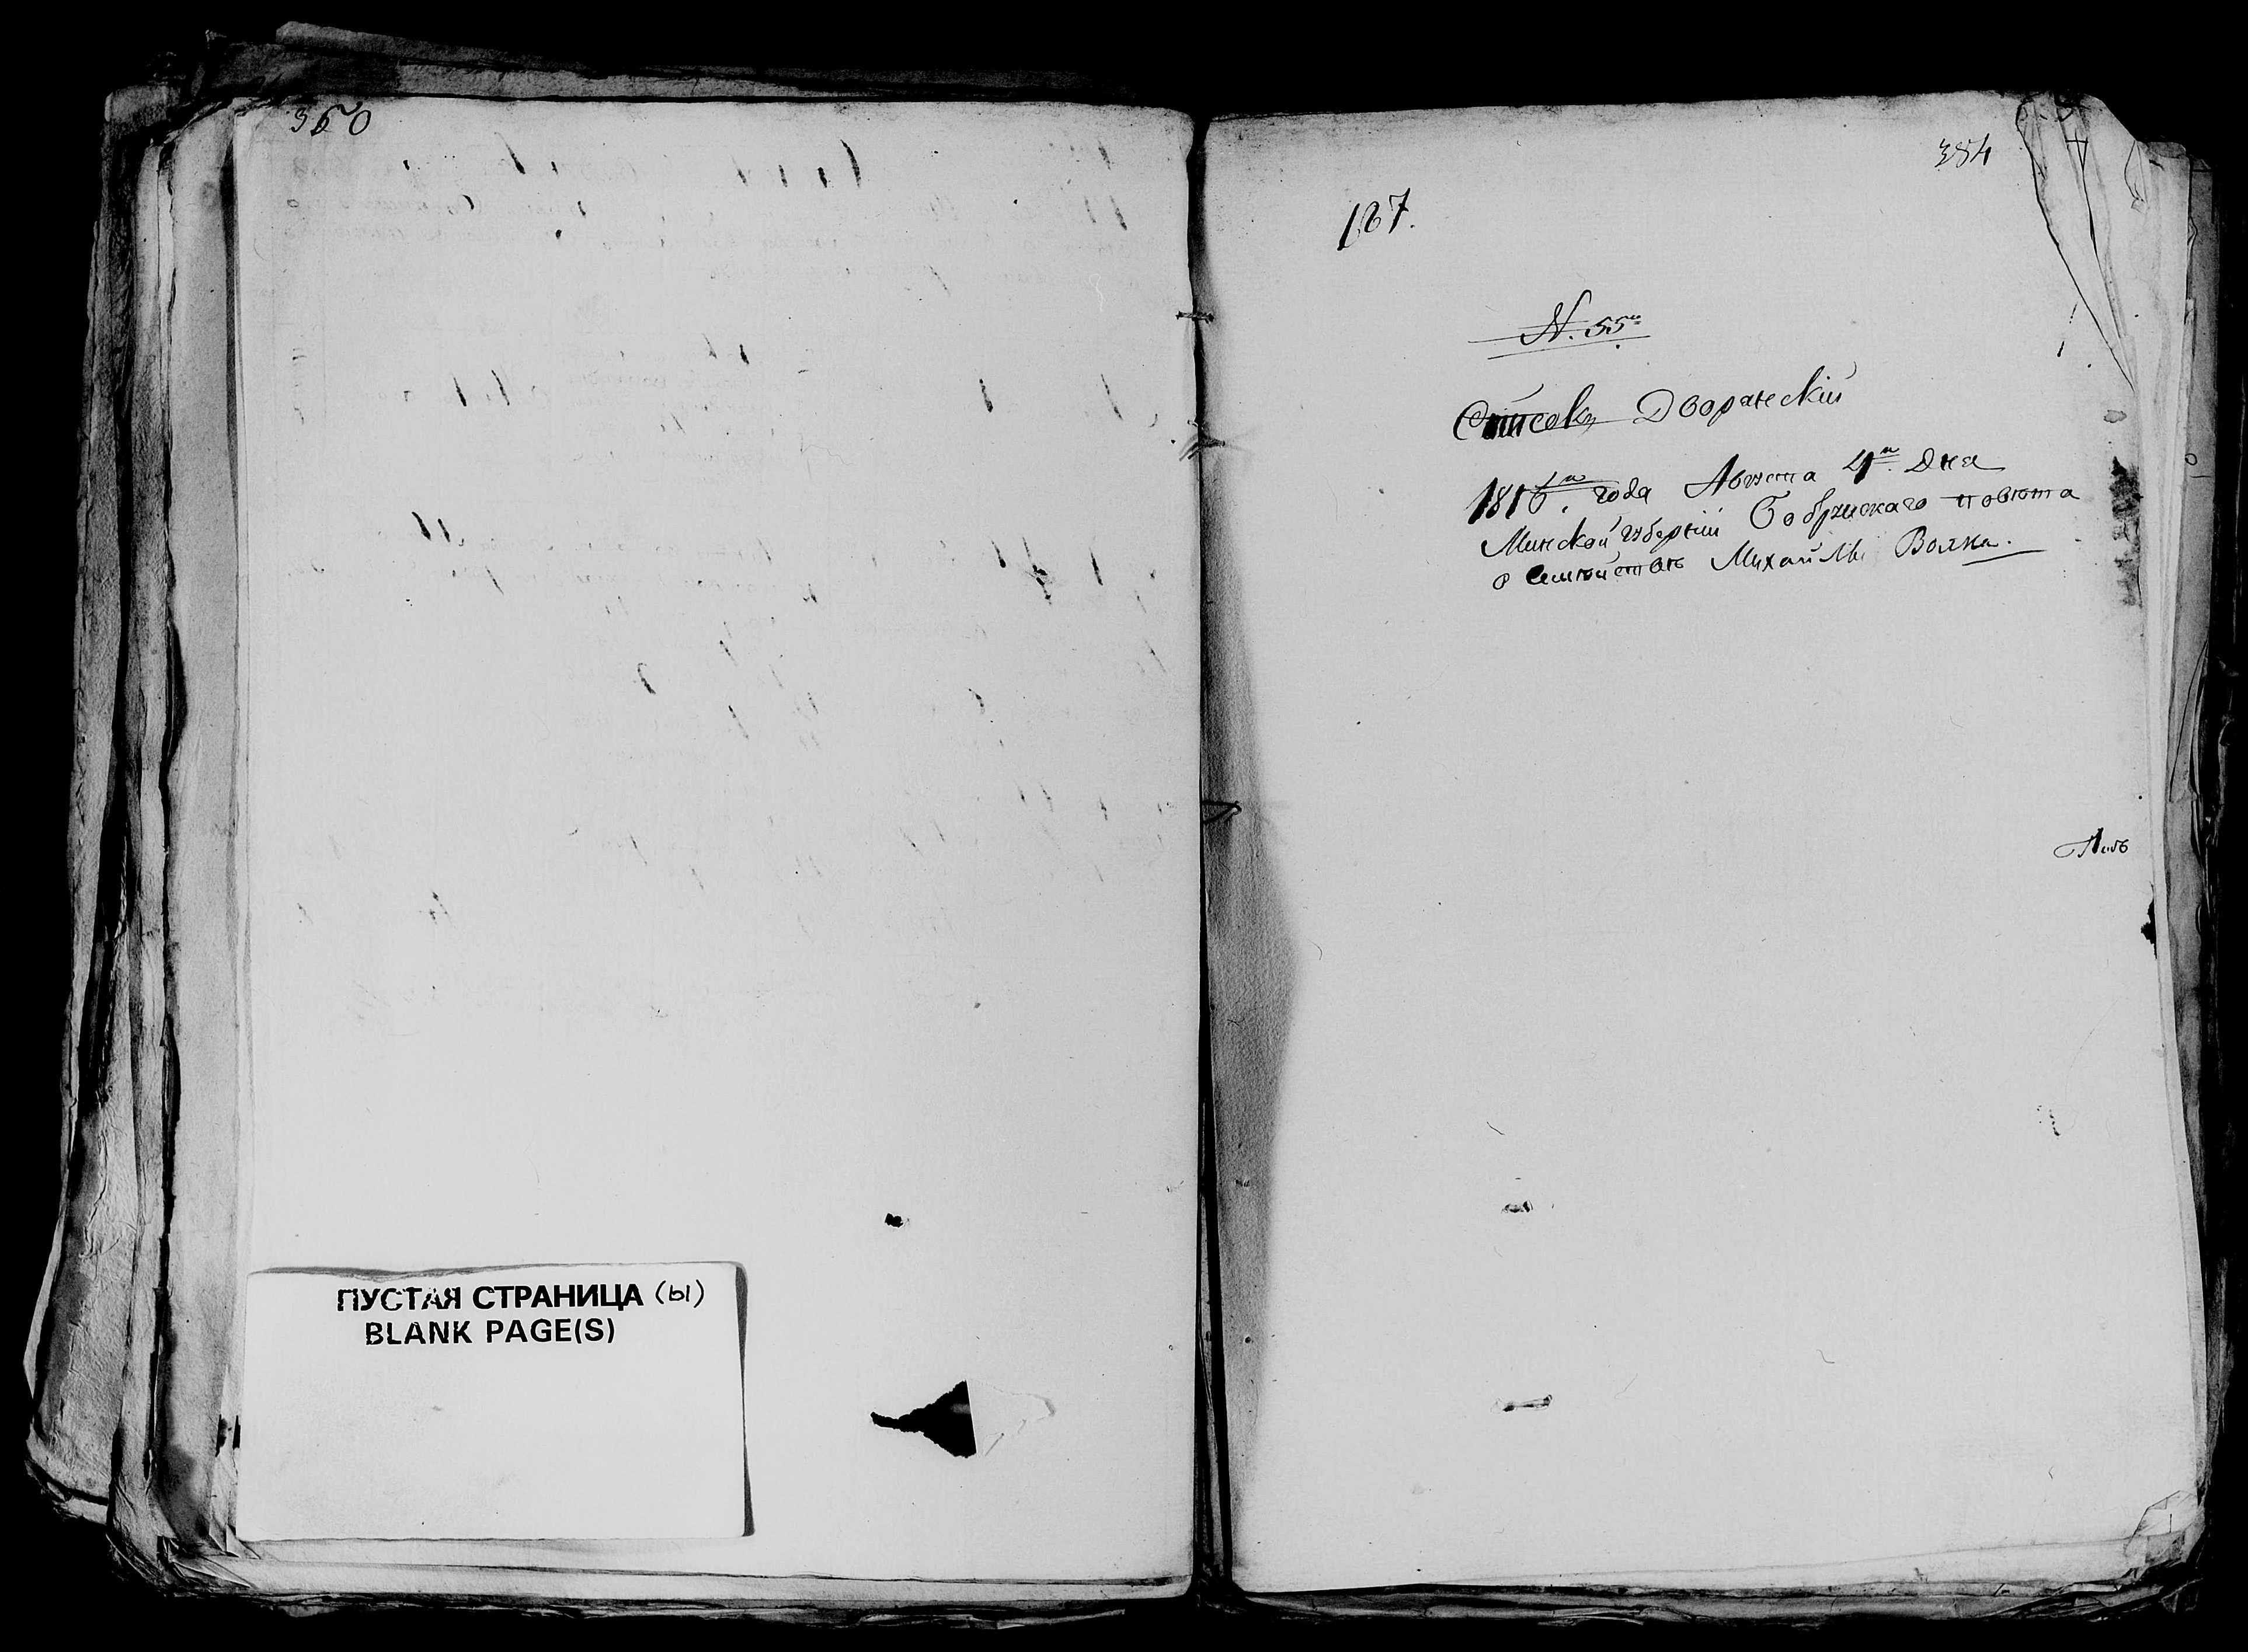 350
ПУСТАЯ СТРАНИЦА (ы)
BLANK PAGE(S)
384
167.
N. 55го
Списокъ Дворянскій
1816го года Августа 4го Дня
Минской губерніи Бобруйскаго повѣта
о семѣйствѣ Михайлы Волка.